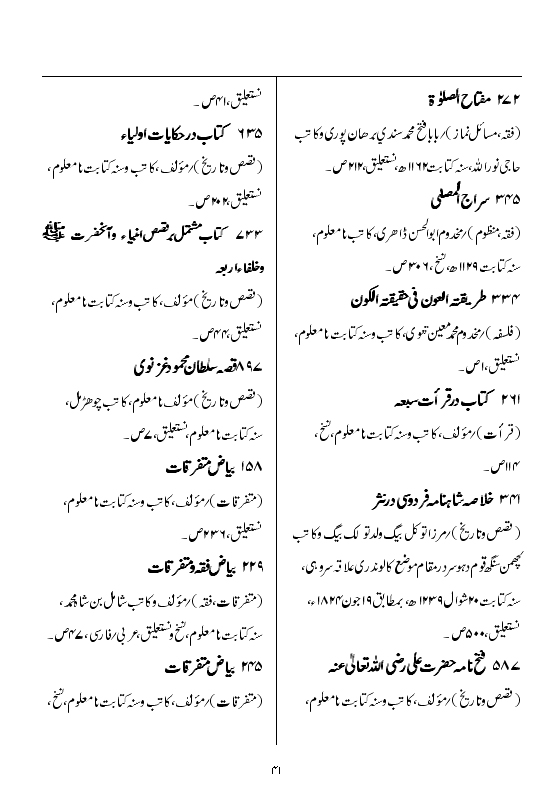 ۲۷۲ مفتاح الصلوٰۃ
(فقہ،مسائل نماز)/بابا فتح محمد سندي برھان پوری وکاتب
حاجی نور اللہ،سنہ کتابت ۱۱۶۲ھ،نستعلیق،۲۱۲ص۔
۳۴۵ سراج المصلی
(فقہ،منظوم)/مخدوم ابوالحسن ڈاھری،کاتب نامعلوم،
سنہ کتابت ۱۱۲۹ھ،نسخ،۳۰۶ص۔
۳۳۴ طریقتہ العون فی حقیقتہ الکون
(فلسفہ)/مخدوم محمد معین ٹھوی،کاتب وسنہ کتابت نامعلوم،
نستعلیق،۱ص۔
۲۶۱ کتاب در قرأت سبعہ
(قرأت)/مؤلف،کاتب وسنہ کتابت نامعلوم،نسخ،
۱۱۴ص۔
۳۴۱ خلاصہ شاہنامہ فردوسی در نثر
(قصص وتاریخ)/مرزا توکل بیگ ولد تولک بیگ وکاتب
لچھمن سنگھ قوم دہوسر در مقام موضع کالوندری علاقہ سروہی،
سنہ کتابت ۲۰شوال ۱۲۳۹ھ،بمطابق ۱۹جون ۱۸۲۴ء،
نستعلیق،۵۰۰ص۔
۵۸۷ فتح نامہ حضرت علی رضی اللہ تعالیٰ عنہ
(قصص وتاریخ)/مؤلف،کاتب وسنہ کتابت نامعلوم،
نستعلیق،۴۱ص۔
۶۳۵ کتاب در حکایات اولیاء
(قصص وتاریخ)/مؤلف،کاتب وسنہ کتابت نامعلوم،
نستعلیق،۲۰۲ص۔
۷۳۳ کتاب مشتمل بر قصص انبیاء وآنحضرت ﷺ
وخلفاء اربعہ
(قصص وتاریخ)/مؤلف،کاتب وسنہ کتابت نامعلوم،
نستعلیق،۴۴ص۔
۸۹۷ قصہ سلطان محمود غزنوی
(قصص وتاریخ)/مؤلف نامعلوم،کاتب چوھڑمل،
سنہ کتابت نامعلوم،نستعلیق،۷ص۔
۱۵۸ بیاض متفرقات
(متفرقات)/مؤلف،کاتب وسنہ کتابت نامعلوم،
نستعلیق،۲۳۶ص۔
۲۲۹ بیاض فقہ ومتفرقات
(متفرقات،فقہ)/مؤلف وکاتب شامل بن شاہ محمد،
سنہ کتابت نامعلوم،نسخ ونستعلیق،عربی/فارسی،۴۷ص۔
۲۴۵ بیاض متفرقات
(متفرقات)/مؤلف،کاتب وسنہ کتابت نامعلوم،نسخ،
۴۱